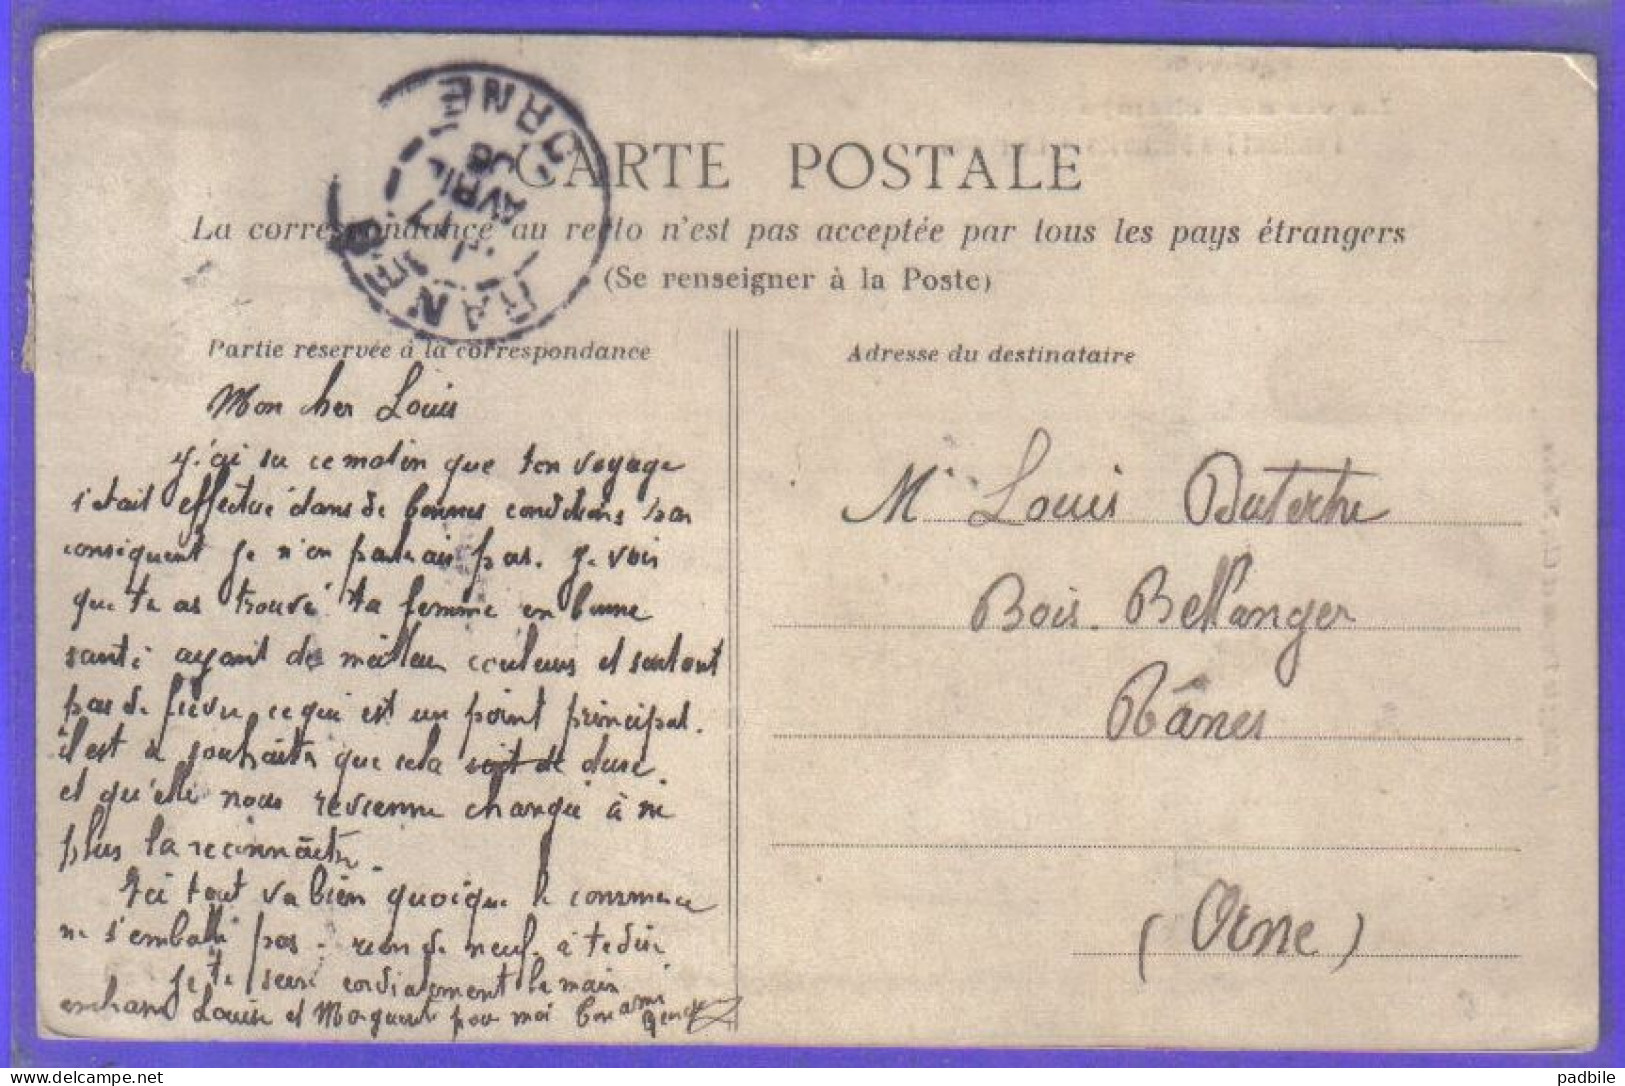 CARTE POSTALE
La correspondance au recto n'est pas acceptée par tous les pays étrangers
(Se renseigner à la Poste)
RANES
ORNE
17
AVRIL
Partie réservée à la correspondance
Mon cher Louis
j'ai su ce matin que ton voyage
s'était effectué dans de bonnes conditions par
conséquent je n'en parlerais pas. je vois
que tu as trouvé ta femme en bonne
santé ayant de meilleur couleurs et surtout
pas de fièvre ce qui est un point principal.
il est a souhaiter que cela dure
et qu'elle nous revienne changée à ne
plus la reconnaître.
Ici tout va bien quoique le commerce
ne s'emballe pas. rien de neuf à te dire
Je te serre cordialement la main
embrasse Louise et Marguerite pour moi Ton ami
Adresse du destinataire
Mr Louis Duterhe
Bois-Bellanger
Rânes
(Orne)
padbile